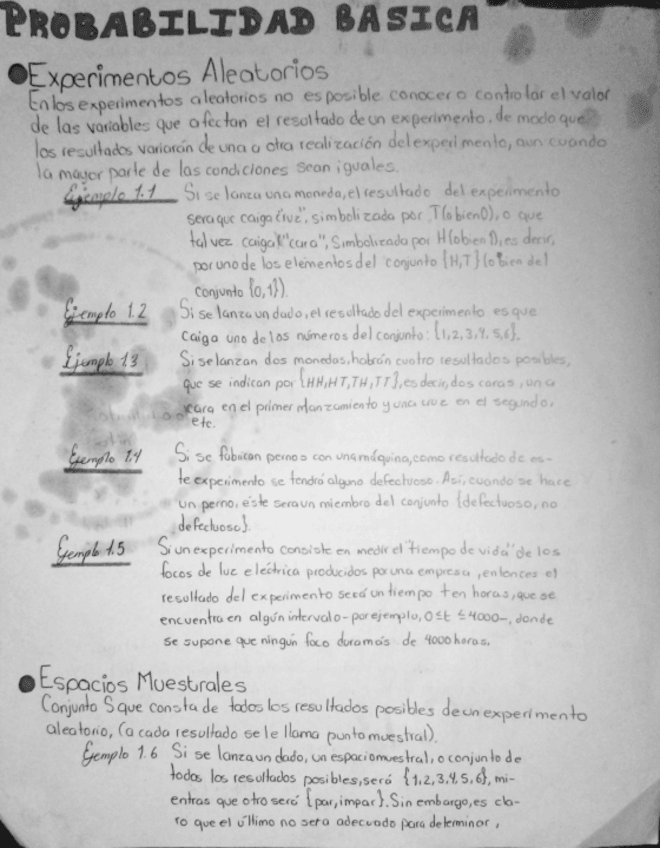 PROBABILIDAD BASICA
Experimentos Aleatorios
En los experimentos aleatorios no es posible conocer o controlar el valor
de las variables que afectan el resultado de un experimento. de modo que
los resultados variarán de una a otra realización del experimento, aun cuando
la mayor parte de las condiciones sean iguales.
Ejemplo 1.1 Si se lanza una moneda, el resultado del experimento
sera que caiga "cruz", simbolizada por T (o bien 0), o que
tal vez caiga "cara", Simbolizada por H (o bien 1), es decir,
por uno de los elementos del conjunto {H,T} (o bien del
conjunto {0,1}).
Ejemplo 1.2 Si se lanza un dado, el resultado del experimento es que
caiga uno de los números del conjunto: {1,2,3,4,5,6}.
Ejemplo 1.3 Si se lanzan dos monedas, habrán cuatro resultados posibles,
que se indican por {HH,HT,TH,TT}, es decir, dos caras, una
cara en el primer lanzamiento y una cruz en el segundo,
etc.
Ejemplo 1.4 Si se fabrican pernos con una máquina, como resultado de es-
te experimento se tendrá alguno defectuoso. Así, cuando se hace
un perno, éste sera un miembro del conjunto {defectuoso, no
defectuoso}.
Ejemplo 1.5 Si un experimento consiste en medir el "tiempo de vida" de los
focos de luz eléctrica producidos por una empresa, entonces el
resultado del experimento será un tiempo t en horas, que se
encuentra en algún intervalo - por ejemplo, 0≤t ≤4000-, donde
se supone que ningún foco dura más de 4000 horas.
Espacios Muestrales
Conjunto S que consta de todos los resultados posibles de un experimento
aleatorio, (a cada resultado se le llama punto muestral).
Ejemplo 1.6 Si se lanza un dado, un espacio muestral, o conjunto de
todos los resultados posibles, será {1,2,3,4,5,6}, mi-
entras que otro será {par, impar}. Sin embargo, es cla-
ro que el último no sera adecuado para determinar,